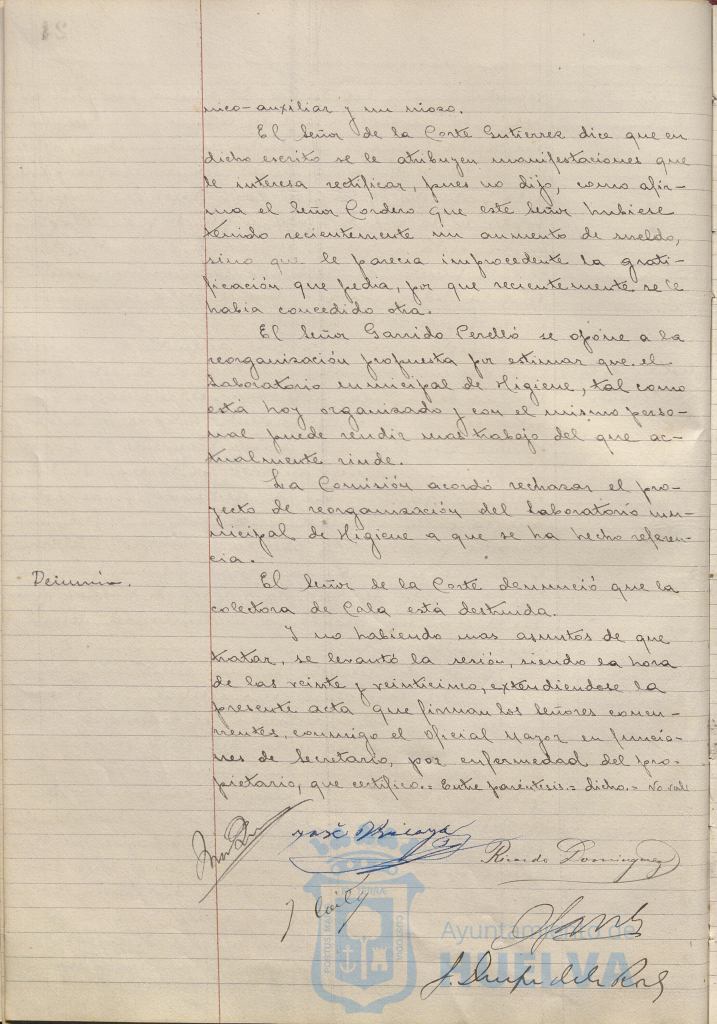 nico-auxiliar y un mozo.
El Señor de la Corte Gutierrez dice que en
dicho escrito se le atribuyen manifestaciones que
le interesa rectificar, pues no dijo, como afir-
ma el Señor Cordero que este Señor hubiese
tenido recientemente un aumento de sueldo,
sino que le parecia improcedente la grati-
ficación que pedia, por que recientemente se le
habia concedido otra.
El Señor Garrido Perelló se opone a la
reorganización propuesta por estimar que el
Laboratorio municipal de Higiene, tal como
está hoy organizado y con el mismo perso-
nal puede rendir mas trabajo del que ac-
tualmente rinde.
La Comisión acordó rechazar el pro-
yecto de reorganización del Laboratorio mu-
nicipal de Higiene a que se ha hecho referen-
cia.
Denuncia.
El Señor de la Corte denunció que la
colectora de Cala está destruida.
Y no habiendo mas asuntos de que
tratar, se levantó la sesión, siendo la hora
de las veinte y veinticinco, extendiendose la
presente acta que firman los señores concu-
rrentes, conmigo el Oficial Mayor en funcio-
nes de Secretario, por enfermedad del pro-
pietario, que certifico.= Entre paréntesis.= dicho.= No vale
José
Ricardo Dominguez
Ayuntamiento de
HUELVA